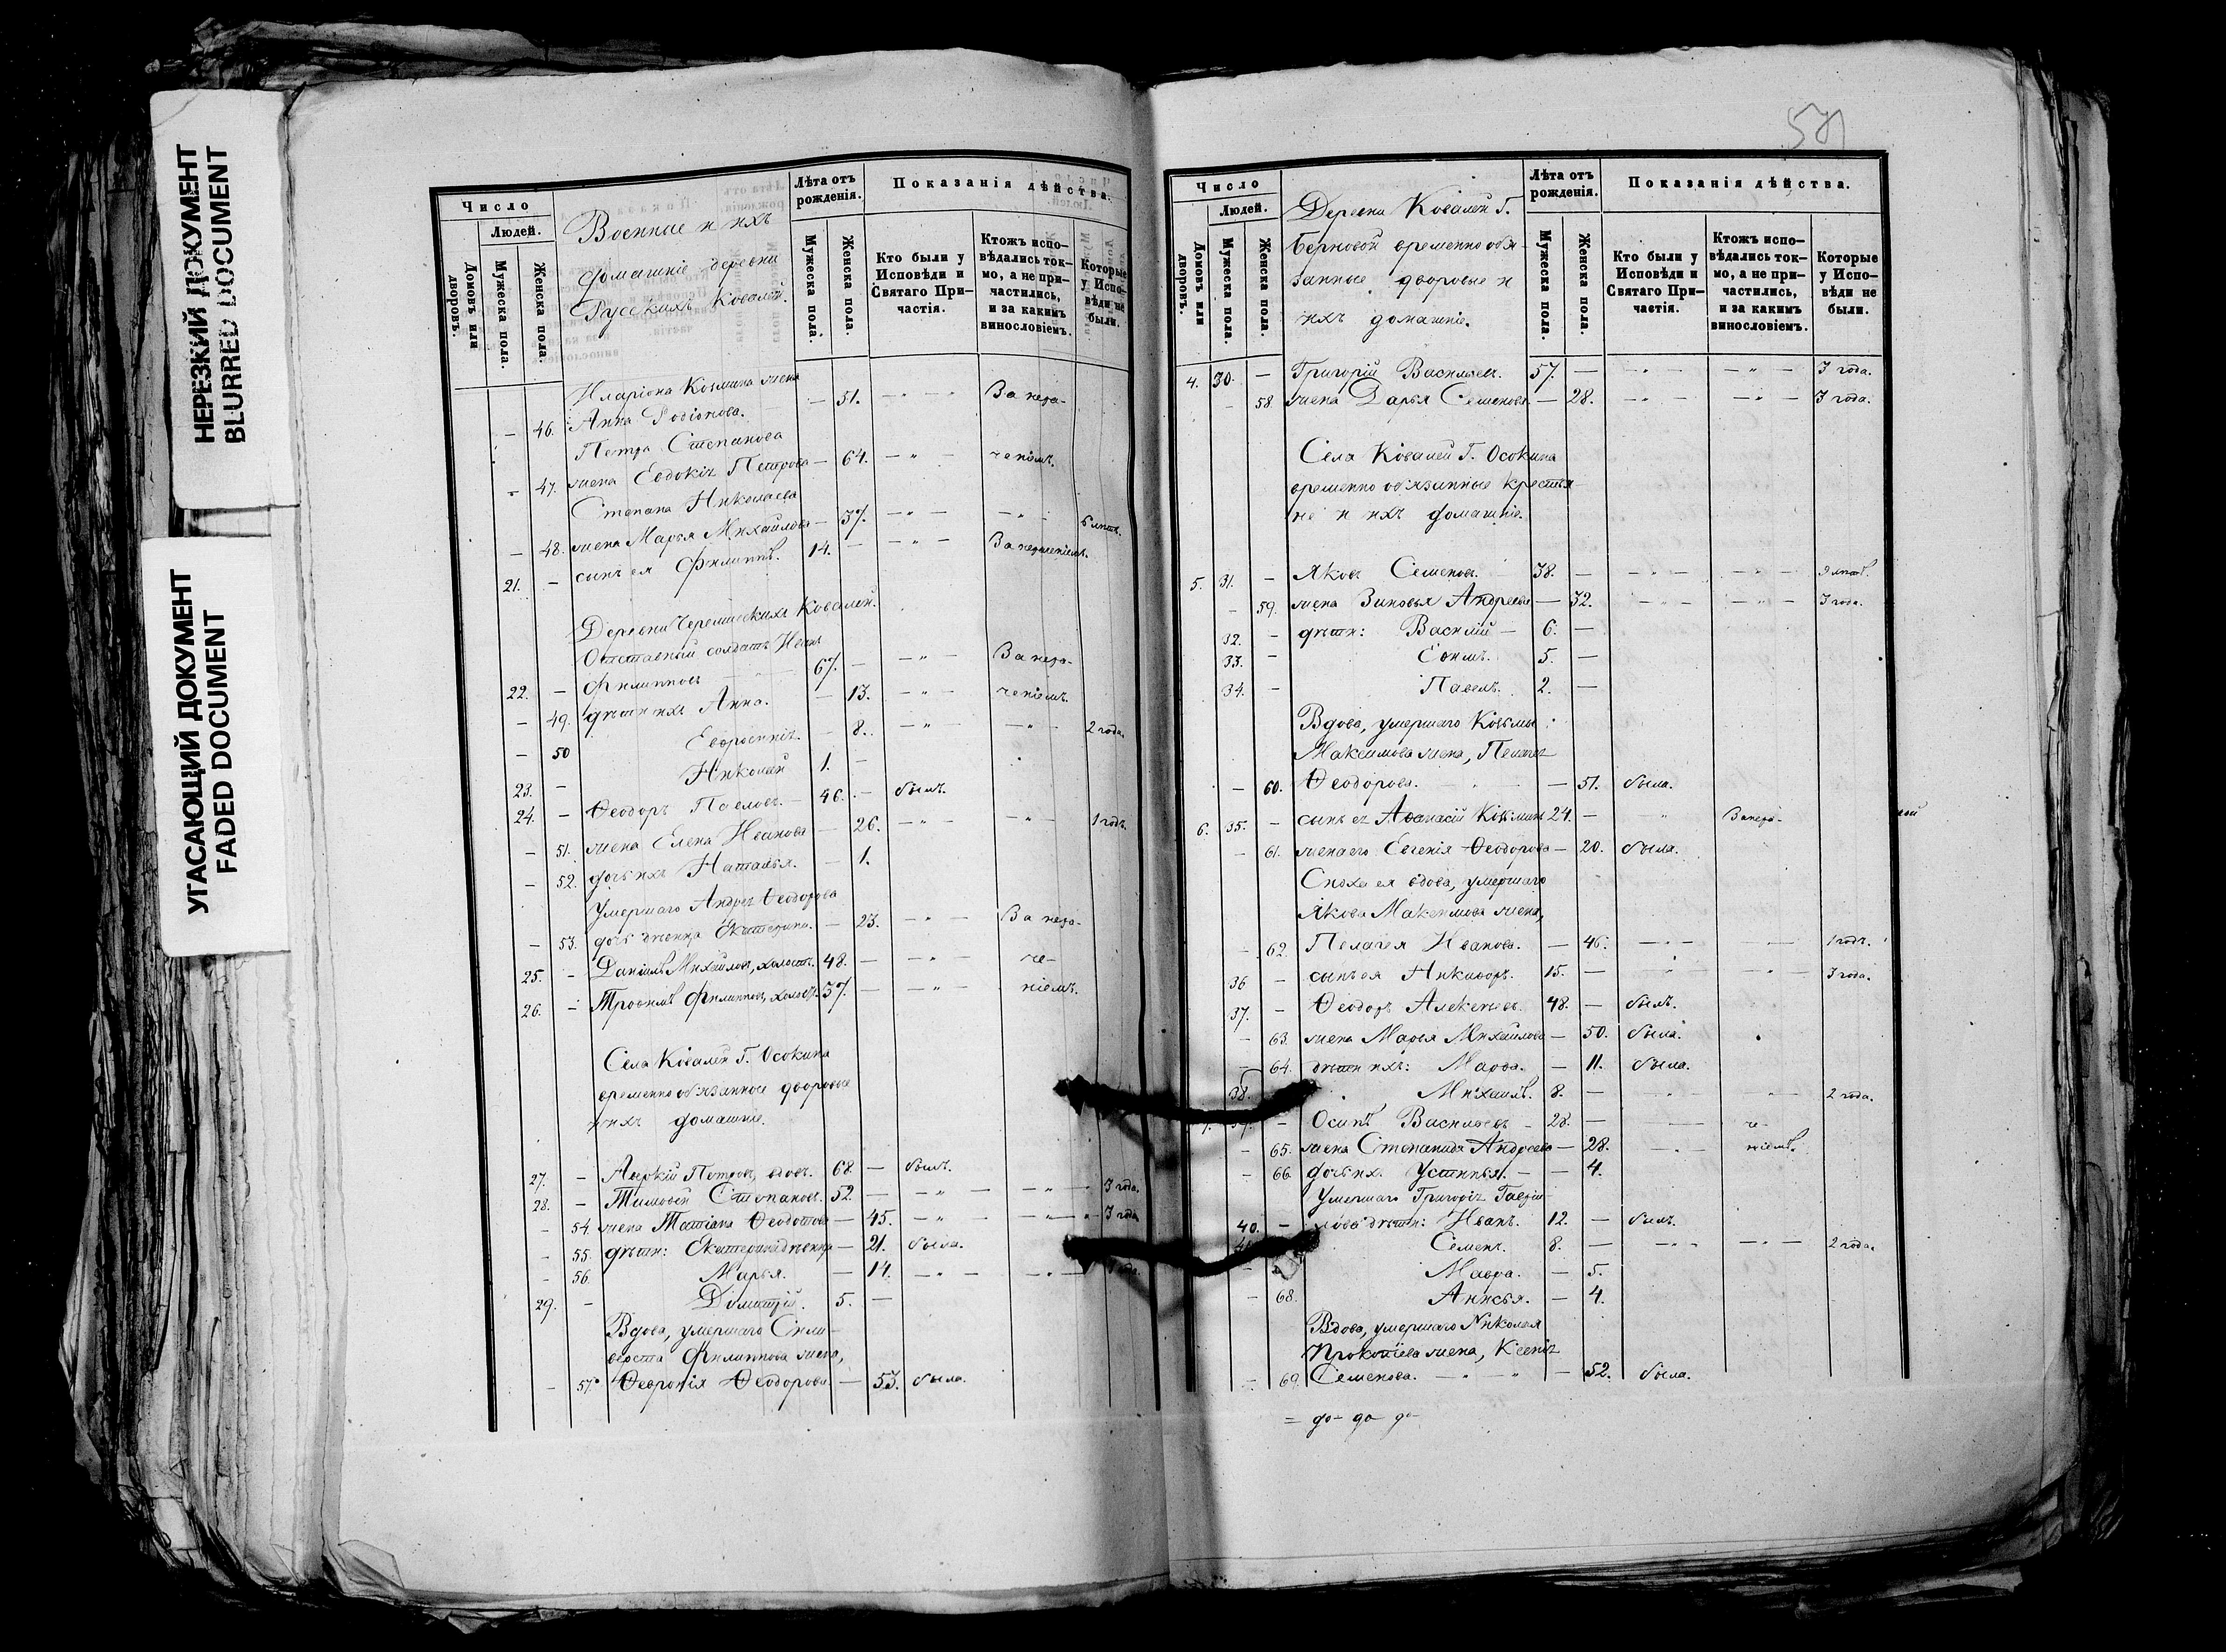 НЕРЕЗКИЙ ДОКУМЕНТ
BLURRED DOCUMENT
УГАСАЮЩИЙ ДОКУМЕНТ
FADED DOCUMENT
Число
Людей.
Домовъ или дворовъ.
Мужеска пола.
Женска пола.
Военные и ихъ
домашніе деревни
Русскихъ Ковалей.
Лѣта отъ рожденія.
Мужеска пола.
Женска пола.
Показанія дѣйства.
Кто были у Исповѣди и Святаго Причастія.
Ктожъ исповѣдались токмо, а не причастились, и за какимъ винословіемъ.
Которые у Исповѣди не были.
Иларіона Козьмина жена
46. Анна Родіонова. — 51. — „ — За нера-
Петра Степанова
47. жена Евдокія Петрова — 64. — „ — ченіемъ.
Степана Николаева
48. жена Марья Михайлова — 37. — „ — — „ — 6 лѣтъ.
21. — сынъ ея Филиппъ. 14. — — „ — За нераченіемъ.
Деревни Черемисскихъ Ковалей.
Отставный солдатъ Иванъ
22. — Филипповъ 67. — — „ — За нера-
— 49. дѣти ихъ Анна. — 13. — „ — ченіемъ.
— 50 Евфросинія. — 8. — „ — — „ — 2 года.
23. — Николай 1. —
24. — Ѳеодоръ Павловъ. — 46. — былъ.
— 51. жена Елена Иванова — 26. — „ — — „ — 1 годъ.
— 52. дочь ихъ Наталья. — 1.
Умершаго Андрея Ѳеодорова
— 53. дочь дѣвица Екатерина. — 23. — „ — За нера-
25. — Даніилъ Михайловъ, холостъ. 48. — — „ — че-
26. — Трофимъ Филипповъ, холостъ. 37. — — „ — ніемъ.
Села Ковалей Г. Осокина
временно обязанные дворовые
и ихъ домашніе.
27. — Петровъ, вдовъ. 68. — былъ.
28. — Тимофей Степановъ. 52. — — „ — — „ — 3 года.
— 54. жена Татіана Ѳеодотова — 45. — „ — — „ — 3 года
— 55. дѣти: Екатерина дѣвица — 21. была.
— 56. Марья. — 14. — „ — — „ —
29. — Димитрій. 5. —
Вдова, умершаго Сили-
верста Филиппова жена,
— 57. Ѳевронія Ѳеодорова. — 53. была.
Число
Людей.
Домовъ или дворовъ.
Мужеска пола.
Женска пола.
Деревни Ковалей Г.
Берновой временно обя-
занные дворовые и
ихъ домашніе.
Лѣта отъ рожденія.
Мужеска пола.
Женска пола.
Показанія дѣйства.
Кто были у Исповѣди и Святаго Причастія.
Ктожъ исповѣдались токмо, а не причастились, и за какимъ винословіемъ.
Которые у Исповѣди не были.
4. 30. — Григорій Васильевъ. 57. — — „ — — „ — 3 года.
— 58. жена Дарья Семенова — 28. — „ — — „ — 3 года.
Села Ковалей Г. Осокина
временно обязанные крестья-
не и ихъ домашніе.
5. 31. — Яковъ Семеновъ. 38. — — „ — — „ —
— 59. жена Зиновья Андреева — 32. — „ — — „ — 3 года.
32. — дѣти: Василій — 6. —
33. — Ефимъ. 5. —
34. — Павелъ. 2. —
Вдова, умершаго Козьмы
Максимова жена, Пелагея
— 60. Ѳеодорова. — 51. была.
6. 35. — сынъ ея Аѳанасій Козьминъ 24. — „ За нера-
— 61. жена его Евгенія Ѳеодорова — 20. была.
Сноха ея вдова, умершаго
Якова Максимова жена,
— 62. Пелагея Иванова. — 46. — „ — 1 годъ.
36 — сынъ ея Никифоръ. 15. — „ 3 года.
37. — Ѳеодоръ Алексѣевъ. 48. — былъ.
— 63. жена Марья Михайлова — 50. была.
— 64. дѣти ихъ: Марфа. — 11. была.
38. Михаилъ. 8. — 2 года.
— Осипъ Васильевъ — 28. — че-
— 65. жена Степанида Андреева — 28. — „ — ніемъ.
— 66. дочь ихъ Устинья. — 4.
Умершаго Григорія Гаврі-
40. — лова дѣти: Иванъ. 12. — былъ.
Семенъ. 8. — — „ — — „ — 2 года.
Мавра. — 5.
— 68. Анисья. — 4.
Вдова, умершаго Николая
Прокопіева жена, Ксенія
— 69. Семенова. — 52. была.